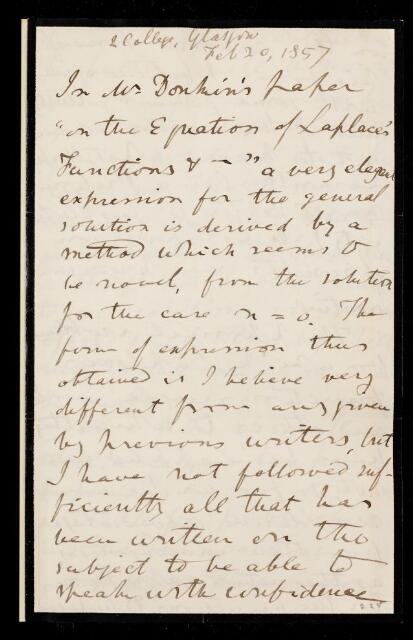 2 College, Glasgow
Feb 20, 1857
In Mr Donkin's paper
"on the Equation of Laplace's
Functions & — " a very elegant
expression for the general
solution is derived by a
method which seems to
be novel, from the solution
for the case n = 0. The
form of expression thus
obtained is I believe very
different from any given
by previous writers, but
I have not followed suf-
ficiently all that has
been written on the
subject to be able to
speak with confidence